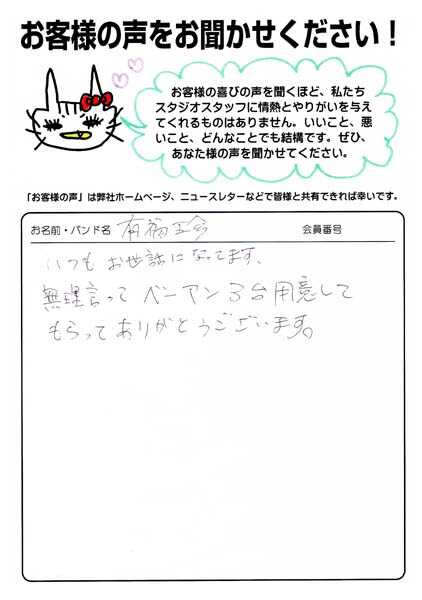 お客様の声をお聞かせください！
お客様の喜びの声を聞くほど、私たち
スタジオスタッフに情熱とやりがいを与え
てくれるものはありません。いいこと、悪
いこと、どんなことでも結構です。ぜひ、
あなた様の声を聞かせてください。
「お客様の声」は弊社ホームページ、ニュースレターなどで皆様と共有できれば幸いです。
お名前・バンド名 有福
会員番号
いつもお世話になってます、
無理言って ベーアン3台用意して
もらってありがとうございます。